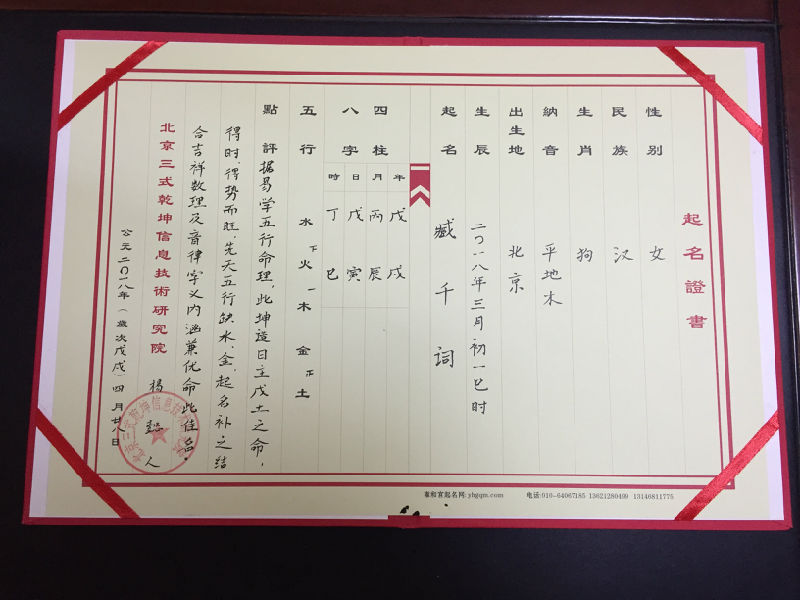 起名證書
性別 女
民族 汉
生肖 狗
納音 平地木
出生地 北京
生辰 二〇一八年三月初一巳时
起名 臧千词
四柱八字
年 戊戌
月 丙辰
日 戊寅
時 丁巳
五行 水下火一木金下土
點評 据易学五行命理，此坤造日主戊土之命，
得时、得势而旺，先天五行缺水、金，起名补之结
合吉祥数理及音律字义内涵兼优命此佳名。
北京三式乾坤信息技術研究院 楊 人
公元二〇一八年（歲次戊戌）四月廿八日
雍和宫起名网:yhgqm.com 电话:010-64067185 13621280499 13146811775